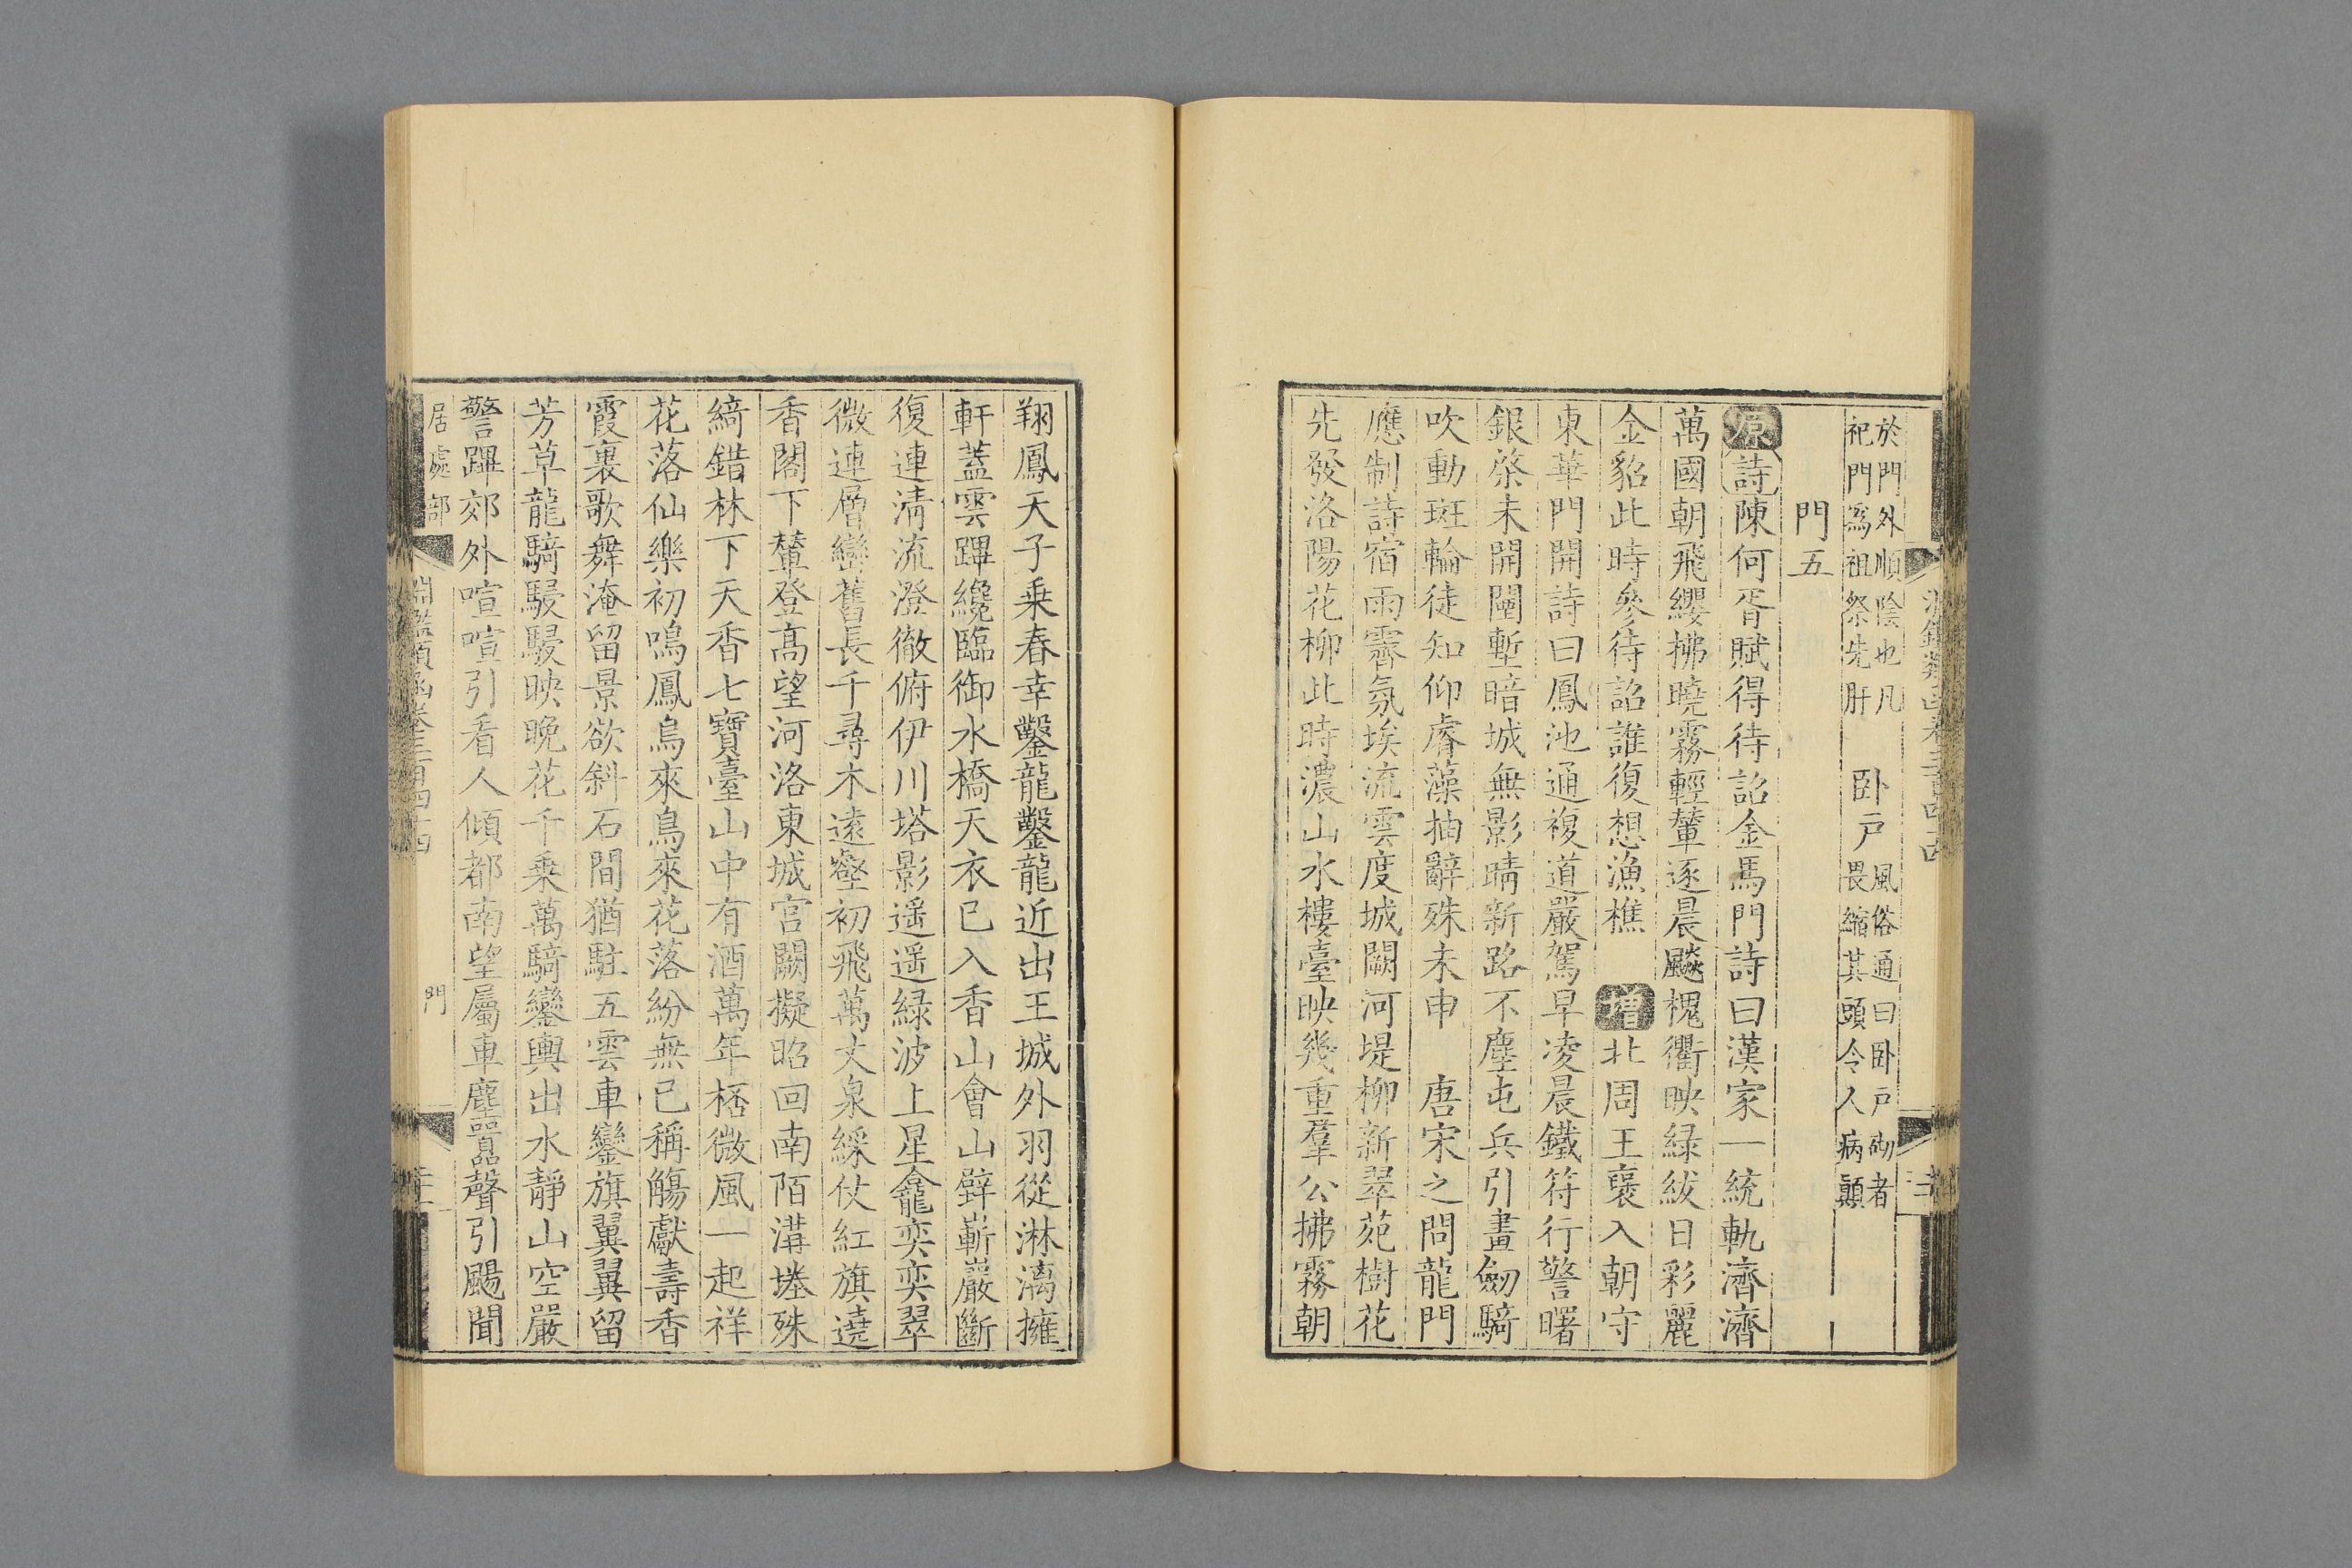 於門外順陰也凡
祀門爲祖祭先肝
卧戸
風俗通曰卧戸砌者
畏縮其頭令人病顛
門五
原詩陳何胥賦得待詔金馬門詩曰漢家一統軌濟濟
萬國朝飛纓拂曉霧輕輦逐晨飈槐衢映緑紱日彩麗
金貂此時參待詔誰復想漁樵 増北周王襃入朝守
東華門開詩曰鳳池通複道嚴駕早凌晨鐵符行警曙
銀棨未開闉塹暗城無影晴新路不塵屯兵引畫劒騎
吹動斑輪徒知仰睿藻抽辭殊未申 唐宋之問龍門
應制詩宿雨霽氛埃流雲度城闕河堤柳新翠苑樹花
先發洛陽花柳此時濃山水樓臺映幾重羣公拂霧朝
翔鳳天子乗春幸鑿龍鑿龍近出王城外羽從淋漓擁
軒蓋雲蹕纔臨御水橋天衣已入香山會山壁嶄巖斷
復連清流澄徹俯伊川塔影遥遥緑波上星龕奕奕翠
微邊層巒舊長千尋木遠壑初飛萬丈泉綵仗紅旗遶
香閣下輦登高望河洛東城宫闕擬昭回南陌溝塍殊
綺錯林下天香七寶臺山中有酒萬年桮微風一起祥
花落仙樂初鳴鳳鳥來鳥來花落紛無已稱觴獻壽香
霞裏歌舞淹留景欲斜石間猶駐五雲車鑾旗翼翼留
芳草龍騎駸駸映晩花千乗萬騎鑾輿出水靜山空嚴
警蹕郊外喧喧引看人傾都南望屬車塵囂聲引颺聞
居處部
淵鑑類函卷三百四十四
門